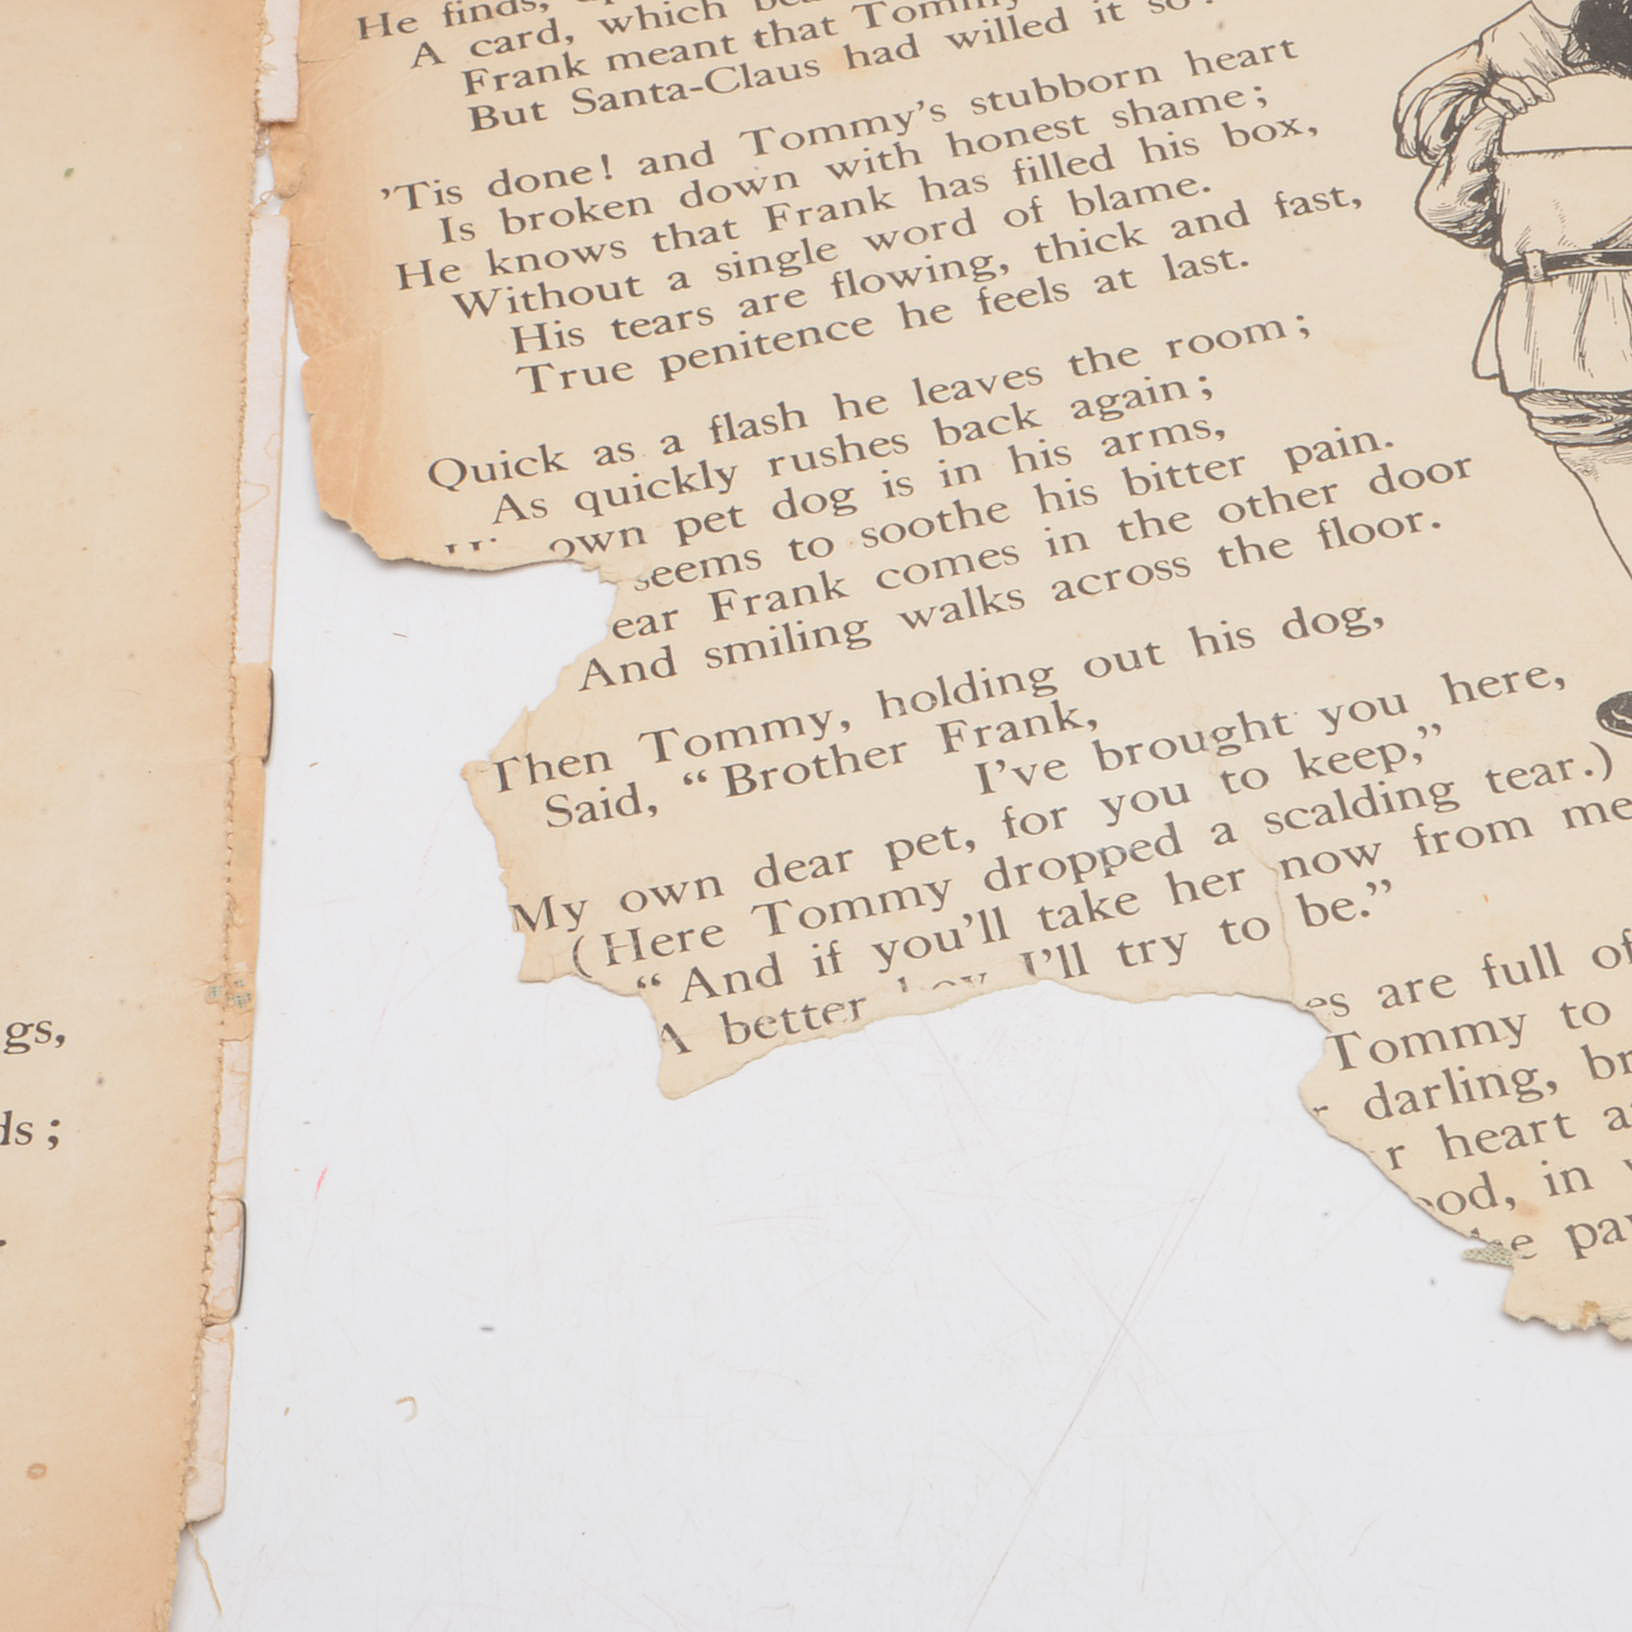 gs,
ds;
He finds,
A card, which
Frank meant that
But Santa-Claus had willed it so!
'Tis done! and Tommy's stubborn heart
Is broken down with honest shame;
He knows that Frank has filled his box,
Without a single word of blame.
His tears are flowing, thick and fast,
True penitence he feels at last.
Quick as a flash he leaves the room;
As quickly rushes back again;
own pet dog is in his arms,
seems to soothe his bitter pain.
ear Frank comes in the other door
And smiling walks across the floor.
Then Tommy, holding out his dog,
Said, “Brother Frank,
I've brought you here,
My own dear pet, for you to keep,”
(Here Tommy dropped a scalding tear.)
“And if you'll take her now from me
A better boy I'll try to be.”
es are full of
Tommy to
r darling, br
r heart a
ood, in
he pa